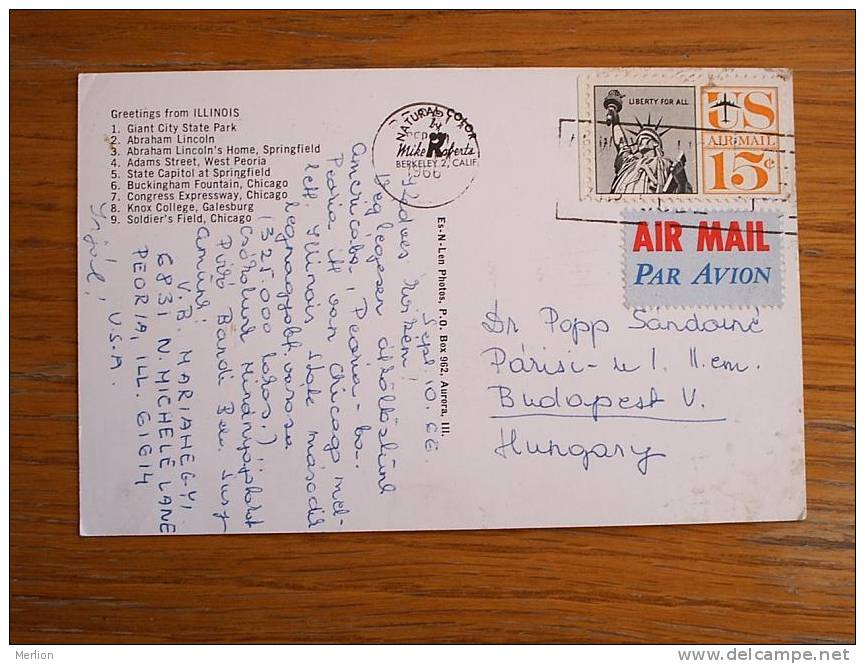 Greetings from ILLINOIS
1. Giant City State Park
2. Abraham Lincoln
3. Abraham Lincoln's Home, Springfield
4. Adams Street, West Peoria
5. State Capitol at Springfield
6. Buckingham Fountain, Chicago
7. Congress Expressway, Chicago
8. Knox College, Galesburg
9. Soldier's Field, Chicago
NATURAL COLOR
by
Mike Roberts
BERKELEY 2, CALIF.
1966
LIBERTY FOR ALL
US
AIR MAIL
15¢
AIR MAIL
PAR AVION
Es-N-Len Photos, P.O. Box 962, Aurora, Ill.
Sept. 10. 66.
Kedves
Véglegesen átköltöztünk
Amerikába, Peoria-ba.
Peoria itt van Chicago mel-
lett Illinois State második
legnagyobb városa
(325.000 lakos.)
Csókolunk Mindnyájatokat
Piri Bandi
Írjál!
V. B. MARIAHEGYI
6831 N. MICHELE LANE
PEORIA, ILL. 61614
U.S.A.
Dr Popp Sándorné
Párisi-u 1. II em.
Budapest V.
Hungary
Merlion
delcampe.net